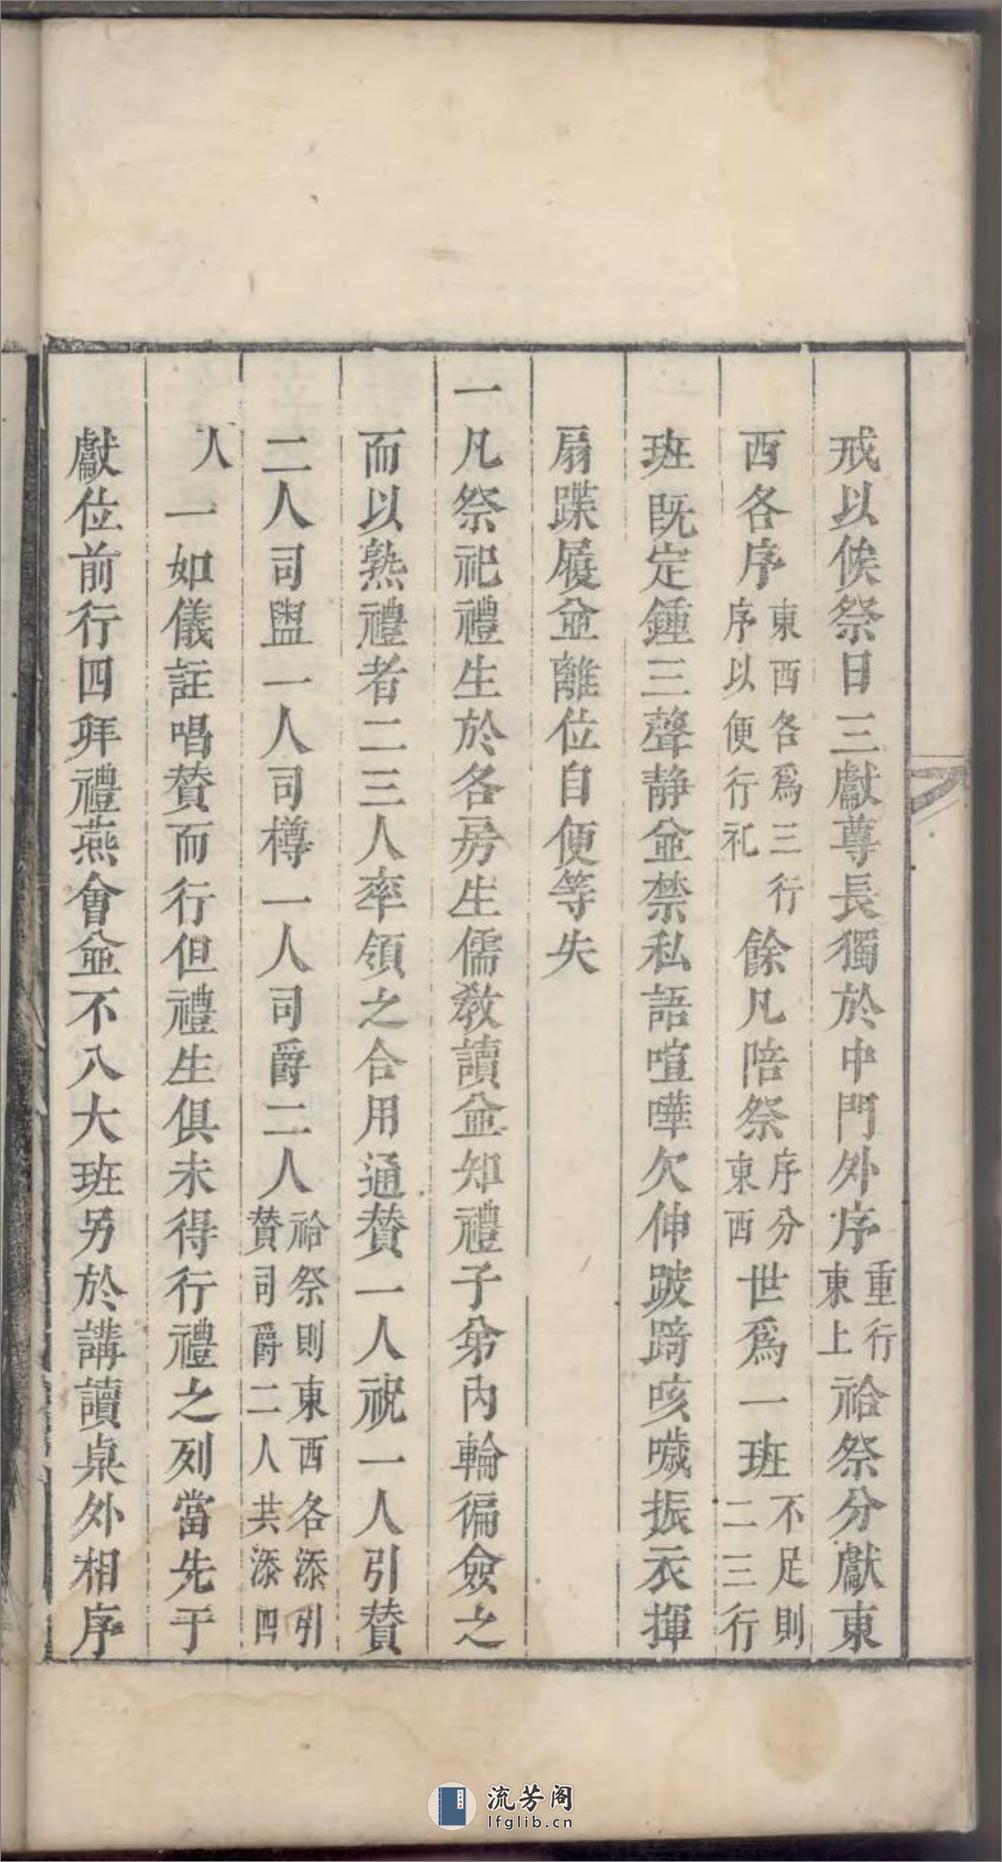 戒以候祭日三獻尊長獨於中門外序重行東上祫祭分獻東
西各序東西各爲三行序以便行礼餘凡陪祭序分東西世爲一班不足則二三行
班既定鍾三聲静並禁私語喧嘩欠伸跛踦咳噦振衣揮
扇蹀履並離位自便等失
一凡祭祀禮生於各房生儒敎讀並知禮子弟內輪徧僉之
而以熟禮者二三人率領之合用通賛一人祝一人引賛
二人司盥一人司樽一人司爵二人祫祭則東西各添引賛司爵二人共添四
人一如儀註唱賛而行但禮生俱未得行禮之列當先于
獻位前行四拜禮燕會並不入大班另於講讀桌外相序
流芳阁
lfglib.cn